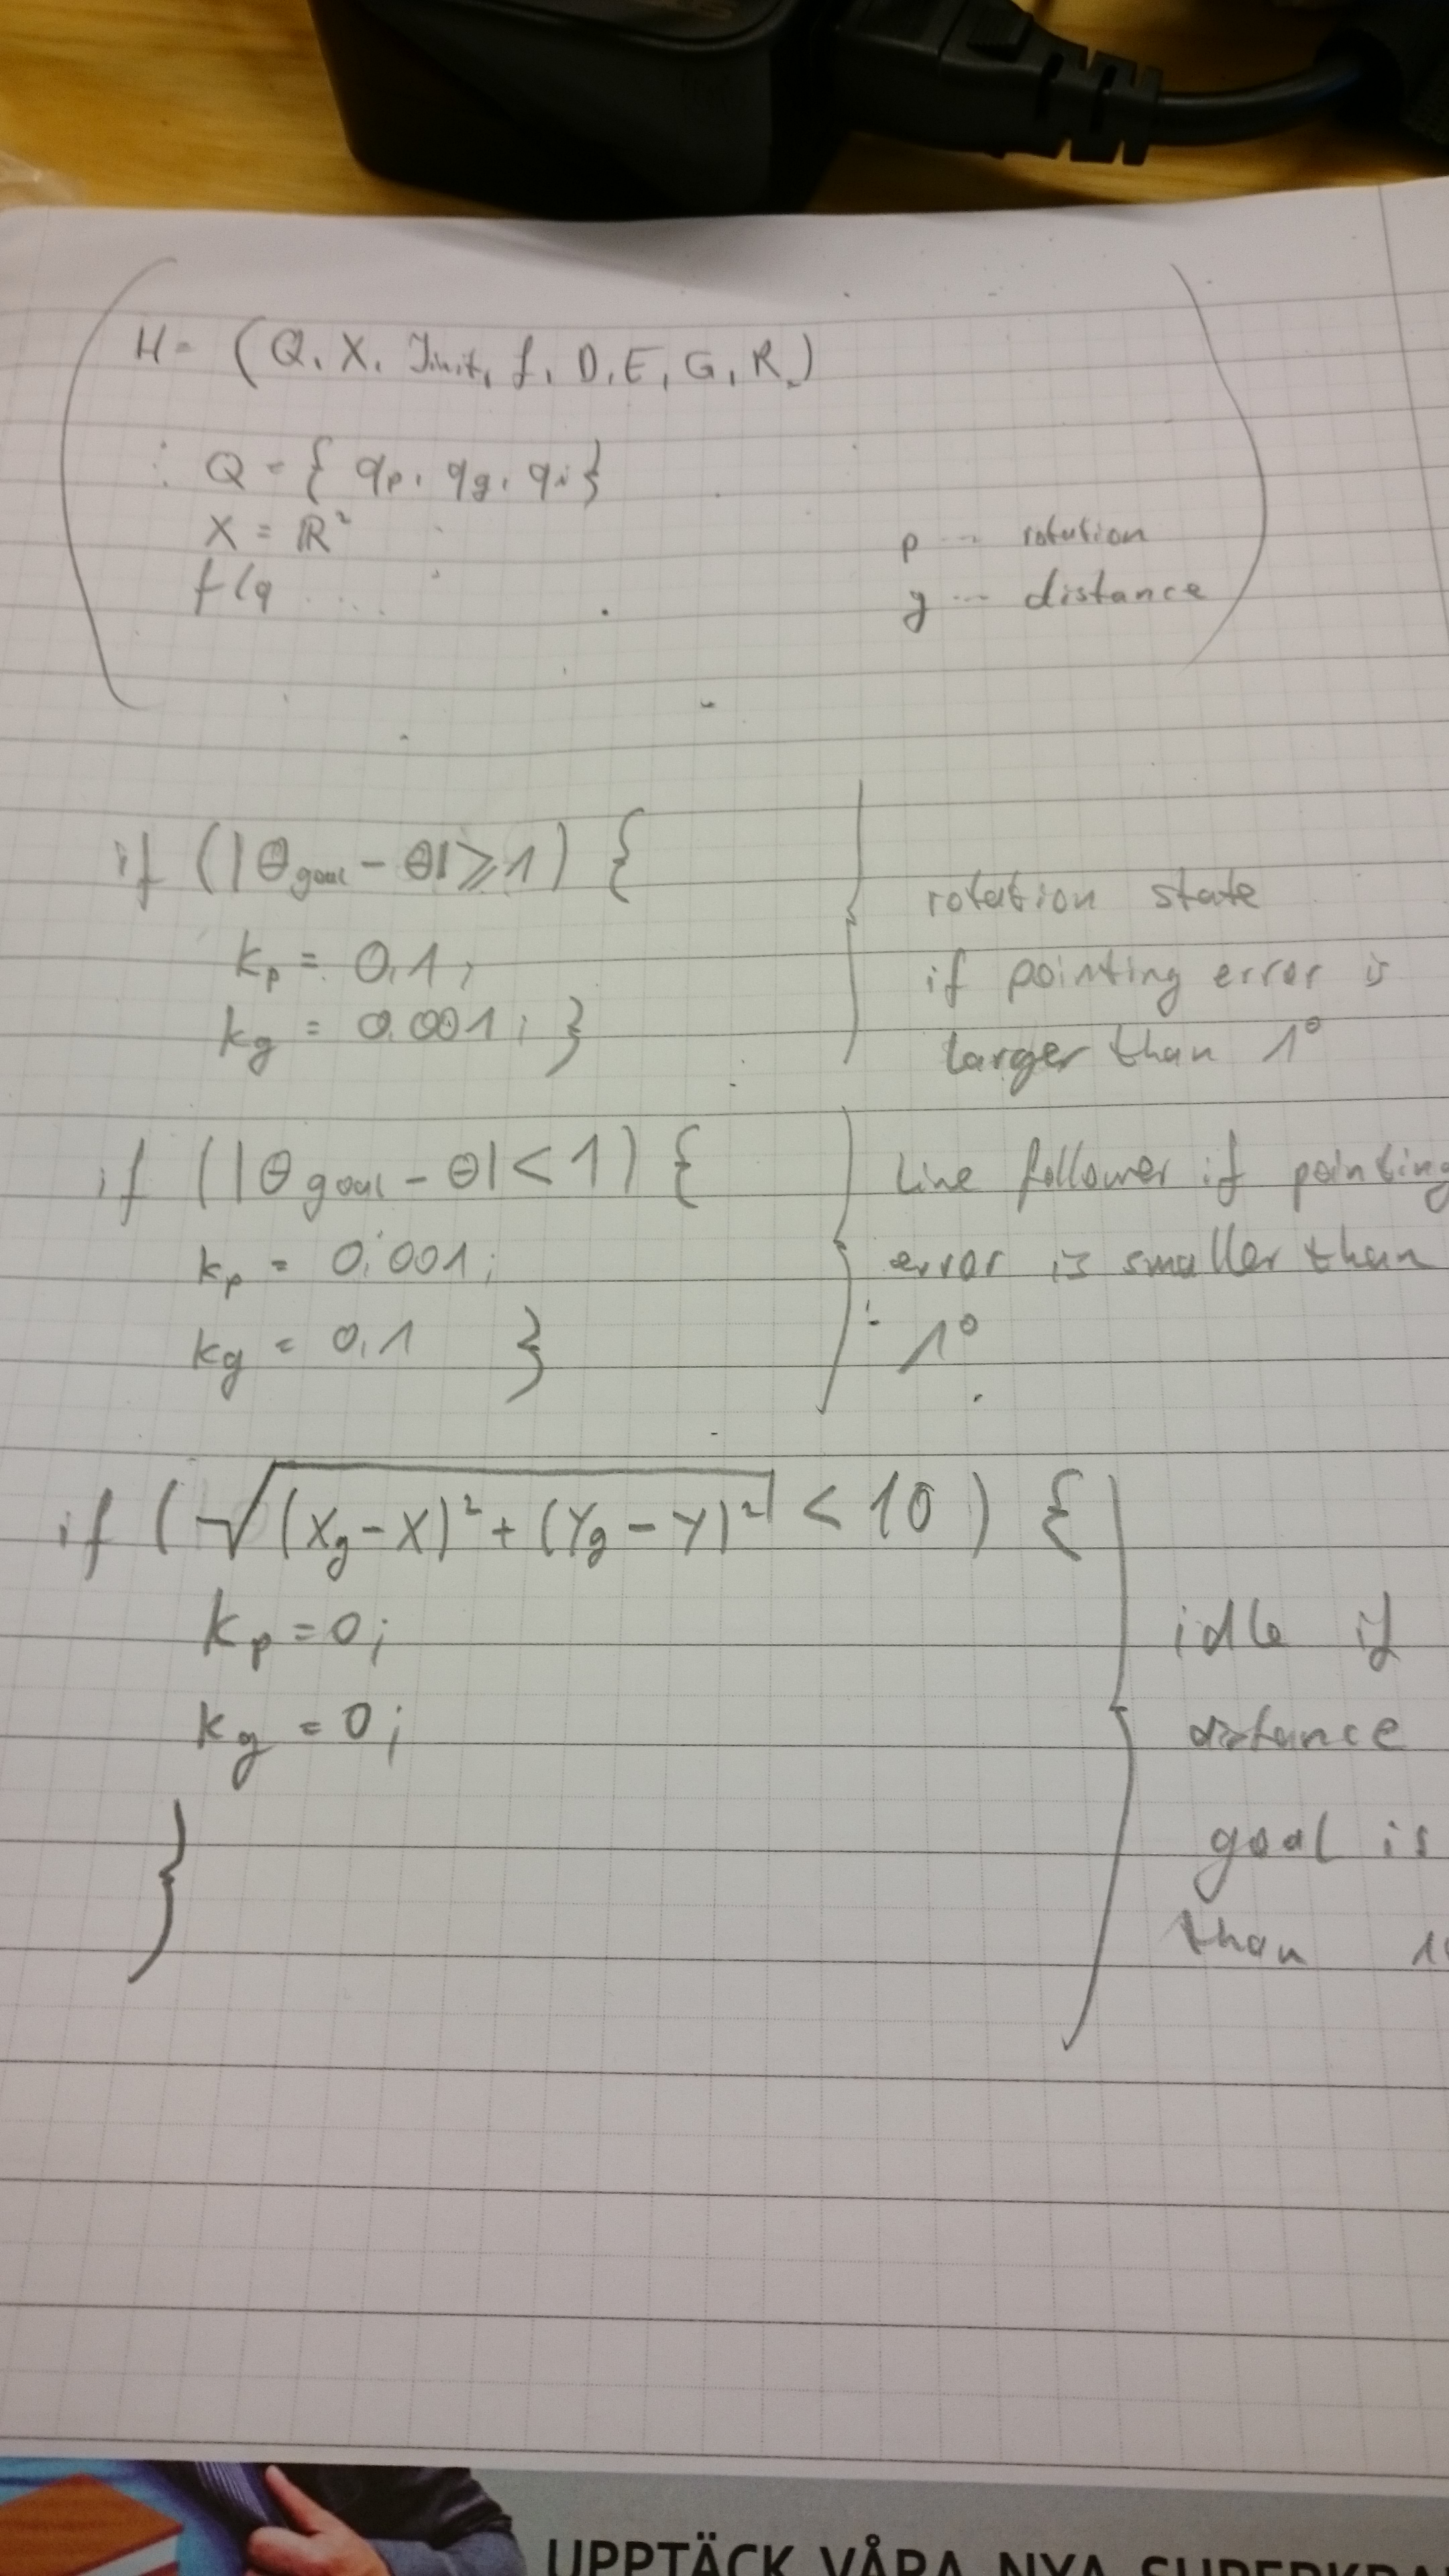 H = (Q, X, Init, f, D, E, G, R,)
: Q = { qp, qg, qi}
X = ℝ²
f(q ....
p ... rotation
g ... distance
if (|θgoal - θ| ⩾ 1) {
kp = 0.1;
kg = 0.001; }
rotation state
if pointing error is
larger than 1°
if (|θgoal - θ| < 1) {
kp = 0.001;
kg = 0.1 }
Line follower if pointing
error is smaller than
1°
if (√(xg - x)² + (yg - y)² < 10) {
kp = 0;
kg = 0;
}
idle if
distance
goal is
than
UPPTÄCK VÅRA NYA